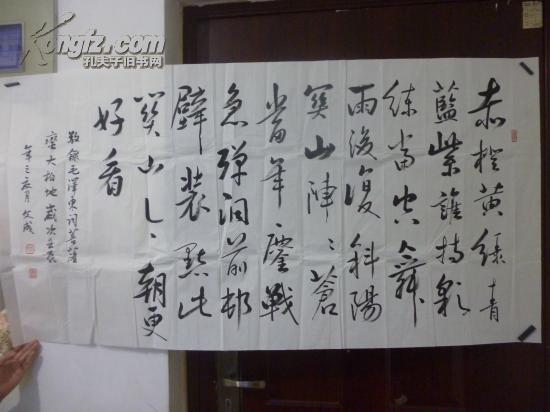 Kongfz.com
孔夫子旧书网
赤橙黃綠青
藍紫誰持彩
练當空舞
雨後復斜陽
関山陣〻蒼
當年鏖戰
急彈洞前邨
壁裝點此
関山今朝更
好看
敬錄毛澤東詞菩薩
蠻大柏地歲次壬辰
年月文成